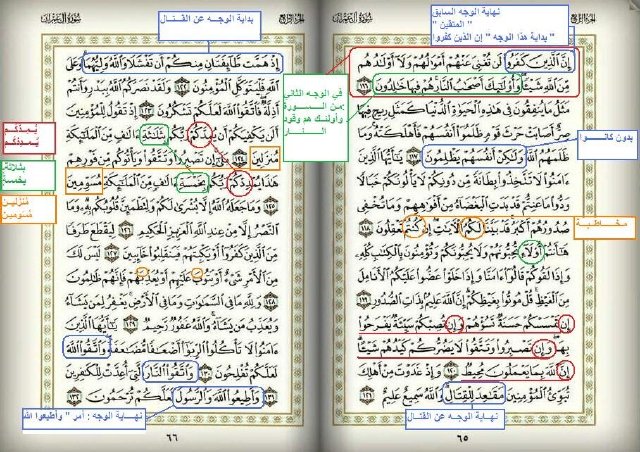 الجزء الرابع
سورة آل عمران
نهاية الوجه السابق
" المتقين "
بداية هذا الوجه " إن الذين كفروا "
إِنَّ الَّذِينَ كَفَرُوا لَن تُغْنِيَ عَنْهُمْ أَمْوَالُهُمْ وَلَا أَوْلَادُهُم
مِّنَ اللَّهِ شَيْئًا وَأُولَٰئِكَ أَصْحَابُ النَّارِ هُمْ فِيهَا خَالِدُونَ ١١٦
مَثَلُ مَا يُنفِقُونَ فِي هَٰذِهِ الْحَيَاةِ الدُّنْيَا كَمَثَلِ رِيحٍ فِيهَا
صِرٌّ أَصَابَتْ حَرْثَ قَوْمٍ ظَلَمُوا أَنفُسَهُمْ فَأَهْلَكَتْهُ وَمَا
ظَلَمَهُمُ اللَّهُ وَلَٰكِنْ أَنفُسَهُمْ يَظْلِمُونَ ١١٧ يَا أَيُّهَا الَّذِينَ
آمَنُوا لَا تَتَّخِذُوا بِطَانَةً مِّن دُونِكُمْ لَا يَأْلُونَكُمْ خَبَالًا
وَدُّوا مَا عَنِتُّمْ قَدْ بَدَتِ الْبَغْضَاءُ مِنْ أَفْوَاهِهِمْ وَمَا تُخْفِي
صُدُورُهُمْ أَكْبَرُ قَدْ بَيَّنَّا لَكُمُ الْآيَاتِ إِن كُنتُمْ تَعْقِلُونَ ١١٨
هَا أَنتُمْ أُولَاءِ تُحِبُّونَهُمْ وَلَا يُحِبُّونَكُمْ وَتُؤْمِنُونَ بِالْكِتَابِ كُلِّهِ
وَإِذَا لَقُوكُمْ قَالُوا آمَنَّا وَإِذَا خَلَوْا عَضُّوا عَلَيْكُمُ الْأَنَامِلَ
مِنَ الْغَيْظِ قُلْ مُوتُوا بِغَيْظِكُمْ إِنَّ اللَّهَ عَلِيمٌ بِذَاتِ الصُّدُورِ ١١٩
إِن تَمْسَسْكُمْ حَسَنَةٌ تَسُؤْهُمْ وَإِن تُصِبْكُمْ سَيِّئَةٌ يَفْرَحُوا
بِهَا وَإِن تَصْبِرُوا وَتَتَّقُوا لَا يَضُرُّكُمْ كَيْدُهُمْ شَيْئًا
إِنَّ اللَّهَ بِمَا يَعْمَلُونَ مُحِيطٌ ١٢٠ وَإِذْ غَدَوْتَ مِنْ أَهْلِكَ
تُبَوِّئُ الْمُؤْمِنِينَ مَقَاعِدَ لِلْقِتَالِ وَاللَّهُ سَمِيعٌ عَلِيمٌ ١٢١
بدون كانـــوا
مخـاطبـة
نهـايـة الوجـه عن القتـال
٦٥
في الوجه الثاني
من الســـورة:
وأولئك هم وقود
النـــار
الجزء الرابع
سورة آل عمران
بداية الوجـه عن القتــال
إِذْ هَمَّت طَّائِفَتَانِ مِنكُمْ أَن تَفْشَلَا وَاللَّهُ وَلِيُّهُمَا وَعَلَى
اللَّهِ فَلْيَتَوَكَّلِ الْمُؤْمِنُونَ ١٢٢ وَلَقَدْ نَصَرَكُمُ اللَّهُ بِبَدْرٍ وَأَنتُمْ
أَذِلَّةٌ فَاتَّقُوا اللَّهَ لَعَلَّكُمْ تَشْكُرُونَ ١٢٣ إِذْ تَقُولُ لِلْمُؤْمِنِينَ
أَلَن يَكْفِيَكُمْ أَن يُمِدَّكُمْ رَبُّكُم بِثَلَاثَةِ آلَافٍ مِّنَ الْمَلَائِكَةِ
مُنزَلِينَ ١٢٤ بَلَىٰ إِن تَصْبِرُوا وَتَتَّقُوا وَيَأْتُوكُم مِّن فَوْرِهِمْ
هَٰذَا يُمْدِدْكُمْ رَبُّكُم بِخَمْسَةِ آلَافٍ مِّنَ الْمَلَائِكَةِ مُسَوِّمِينَ
١٢٥ وَمَا جَعَلَهُ اللَّهُ إِلَّا بُشْرَىٰ لَكُمْ وَلِتَطْمَئِنَّ قُلُوبُكُم بِهِ وَمَا
النَّصْرُ إِلَّا مِنْ عِندِ اللَّهِ الْعَزِيزِ الْحَكِيمِ ١٢٦ لِيَقْطَعَ طَرَفًا
مِّنَ الَّذِينَ كَفَرُوا أَوْ يَكْبِتَهُمْ فَيَنقَلِبُوا خَائِبِينَ ١٢٧ لَيْسَ لَكَ
مِنَ الْأَمْرِ شَيْءٌ أَوْ يَتُوبَ عَلَيْهِمْ أَوْ يُعَذِّبَهُمْ فَإِنَّهُمْ ظَالِمُونَ
١٢٨ وَلِلَّهِ مَا فِي السَّمَاوَاتِ وَمَا فِي الْأَرْضِ يَغْفِرُ لِمَن يَشَاءُ
وَيُعَذِّبُ مَن يَشَاءُ وَاللَّهُ غَفُورٌ رَّحِيمٌ ١٢٩ يَا أَيُّهَا الَّذِينَ
آمَنُوا لَا تَأْكُلُوا الرِّبَا أَضْعَافًا مُّضَاعَفَةً وَاتَّقُوا اللَّهَ
لَعَلَّكُمْ تُفْلِحُونَ ١٣٠ وَاتَّقُوا النَّارَ الَّتِي أُعِدَّتْ لِلْكَافِرِينَ
١٣١ وَأَطِيعُوا اللَّهَ وَالرَّسُولَ لَعَلَّكُمْ تُرْحَمُونَ ١٣٢
يُـمدّكـم
يُـمددْكم
بثلاثة
بخمسة
مُنزلين
مُسومين
نهـاية الوجه : أمر " وأطيعوا الله
٦٦